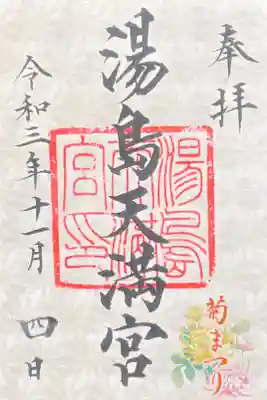 奉拝
湯島天満宮
湯島天満宮印
令和三年十一月
四日
菊まつり